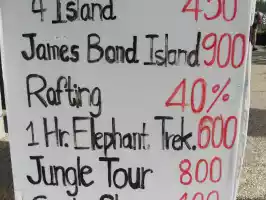 4 Island 450
James Bond Island 900
Rafting 40%
1 Hr. Elephant. Trek. 600
Jungle Tour 800